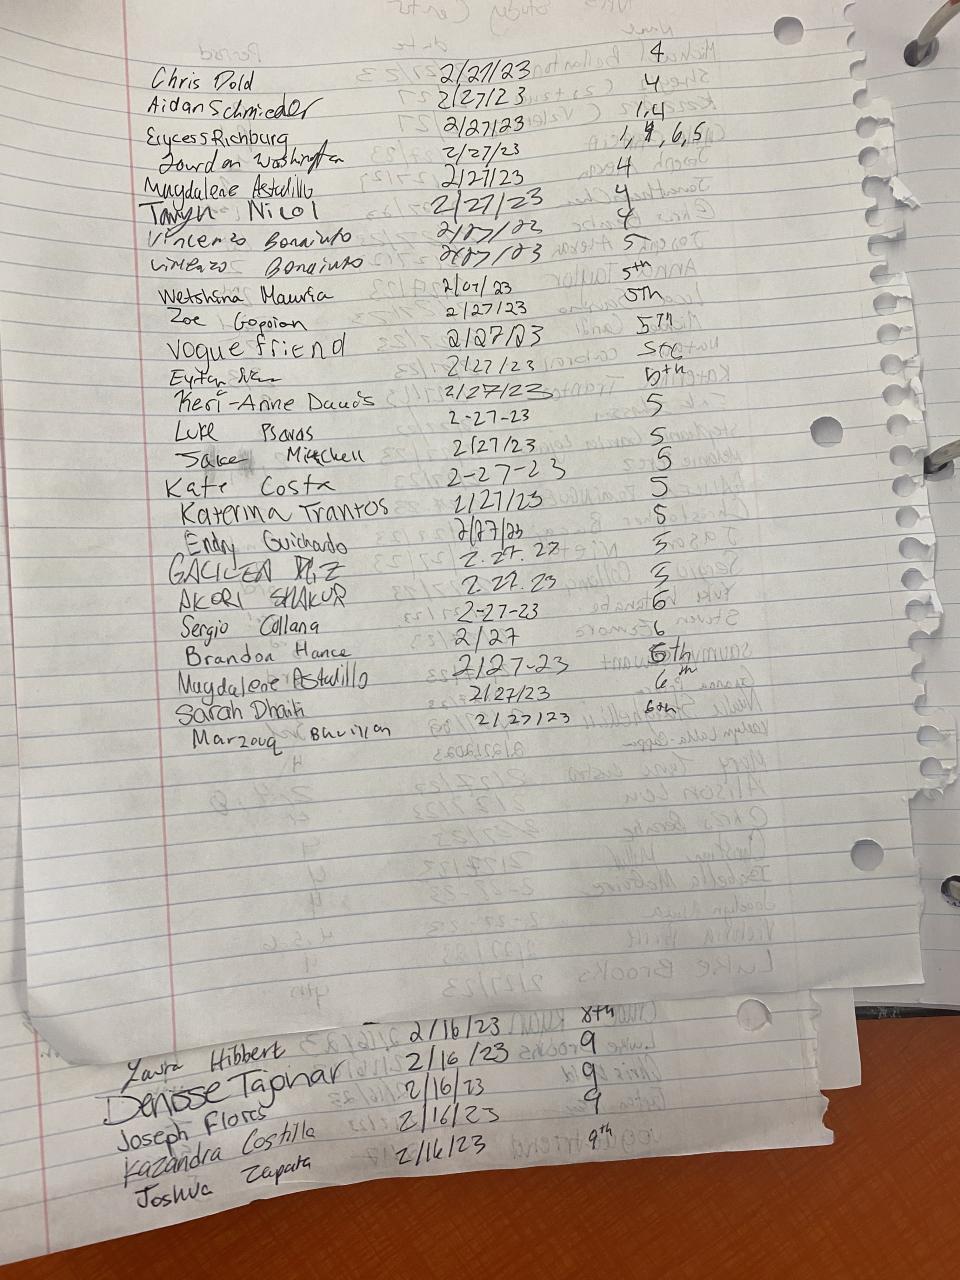 Chris Dold 2/27/23 4
Aidan Schmieder 2/27/23 4
Erycess Richburg 2/27/23 1,4
Jourdan Washington 2/27/23 1, 4, 6, 5
Magdalene Astudillo 2/27/23 4
Taryn Nicol 2/27/23 4
Vincenzo Bonaiuto 2/27/23 4
Vincenzo Bonaiuto 2/27/23 5
Wetshina Mauria 2/27/23 5th
Zoe Gopoian 2/27/23 5th
Vogue friend 2/27/23 5th
Eytan 2/27/23 5th
Keri-Anne Davis 2/27/23 5th
Luke Psaras 2-27-23 5
Jake Mitchell 2/27/23 5
Kate Costa 2-27-23 5
Katerina Trantos 2/27/23 5
Endry Guichardo 2/27/23 5
GALILEA 2.27.27 5
AKORI SHAKUR 2.27.23 5
Sergio Collana 2-27-23 6
Brandon Hance 2/27 6
Magdalene Astudillo 2/27-23 6th
Sarah Dhaiti 2/27/23 6th
Marzouq 2/27/23 6th
Laura Hibbert 2/16/23 8th
Denisse Tapnar 2/16/23 9
Joseph Flores 2/16/23 9
Kazandra Costilla 2/16/23 9
Joshua Zapata 2/16/23 9th